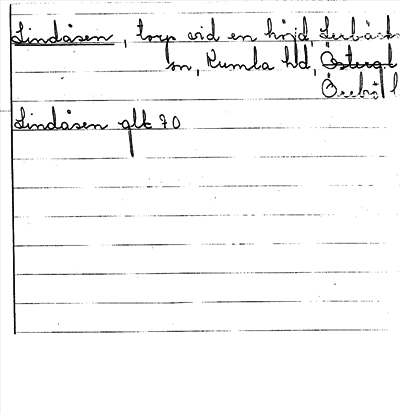 Lindåsen, torp vid en höjd, Lerbäck
sn, Kumla hd, Östergl
Örebro l
Lindåsen glt 70